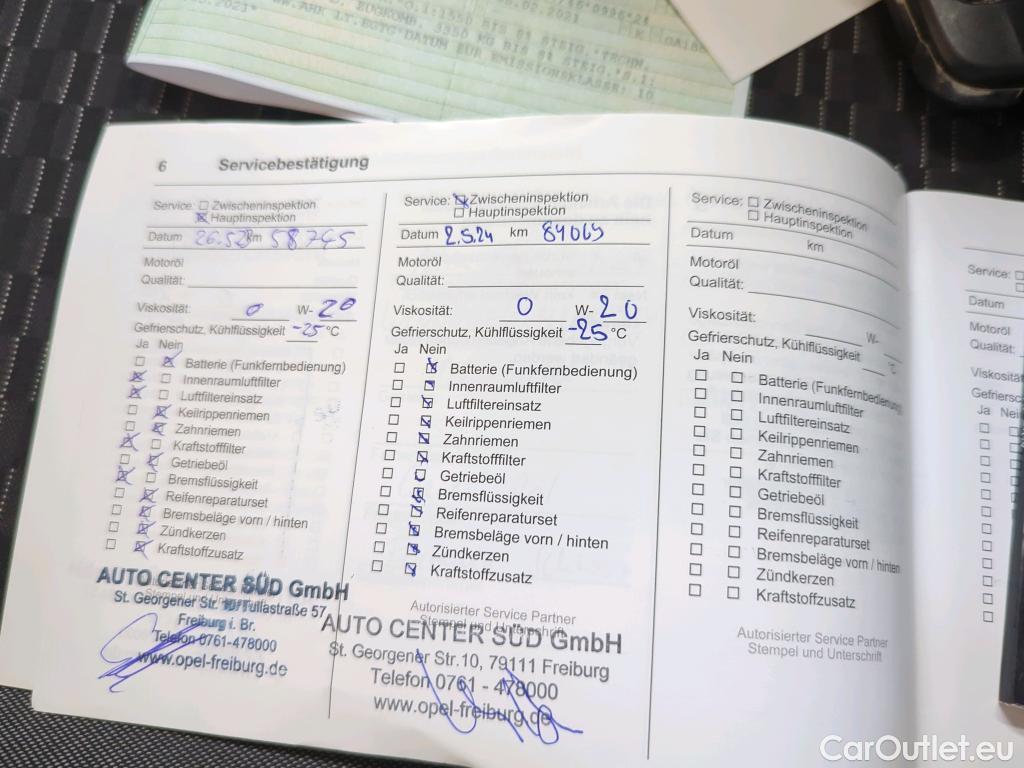 6 Servicebestätigung
Service: Zwischeninspektion
Hauptinspektion
Datum 26.5.23 km 58745
Motoröl
Qualität:
Viskosität: 0 W-20
Gefrierschutz, Kühlflüssigkeit -25 °C
Ja Nein
Batterie (Funkfernbedienung)
Innenraumluftfilter
Luftfiltereinsatz
Keilrippenriemen
Zahnriemen
Kraftstofffilter
Getriebeöl
Bremsflüssigkeit
Reifenreparaturset
Bremsbeläge vorn / hinten
Zündkerzen
Kraftstoffzusatz
AUTO CENTER SÜD GmbH
St. Georgener Str. Tullastraße 57
Freiburg i. Br.
Telefon 0761-478000
www.opel-freiburg.de
Service: Zwischeninspektion
Hauptinspektion
Datum 2.5.24 km 84069
Motoröl
Qualität:
Viskosität: 0 W-20
Gefrierschutz, Kühlflüssigkeit -25 °C
Ja Nein
Batterie (Funkfernbedienung)
Innenraumluftfilter
Luftfiltereinsatz
Keilrippenriemen
Zahnriemen
Kraftstofffilter
Getriebeöl
Bremsflüssigkeit
Reifenreparaturset
Bremsbeläge vorn / hinten
Zündkerzen
Kraftstoffzusatz
Autorisierter Service Partner
Stempel und Unterschrift
AUTO CENTER SÜD GmbH
St. Georgener Str.10, 79111 Freiburg
Telefon 0761 - 478000
www.opel-freiburg.de
Service: Zwischeninspektion
Hauptinspektion
Datum km
Motoröl
Qualität:
Viskosität: W-
Gefrierschutz, Kühlflüssigkeit °C
Ja Nein
Batterie (Funkfernbedienung)
Innenraumluftfilter
Luftfiltereinsatz
Keilrippenriemen
Zahnriemen
Kraftstofffilter
Getriebeöl
Bremsflüssigkeit
Reifenreparaturset
Bremsbeläge vorn / hinten
Zündkerzen
Kraftstoffzusatz
Autorisierter Service Partner
Stempel und Unterschrift
Service:
Datum
Motoröl
Qualität:
Ja Nein
CarOutlet.eu